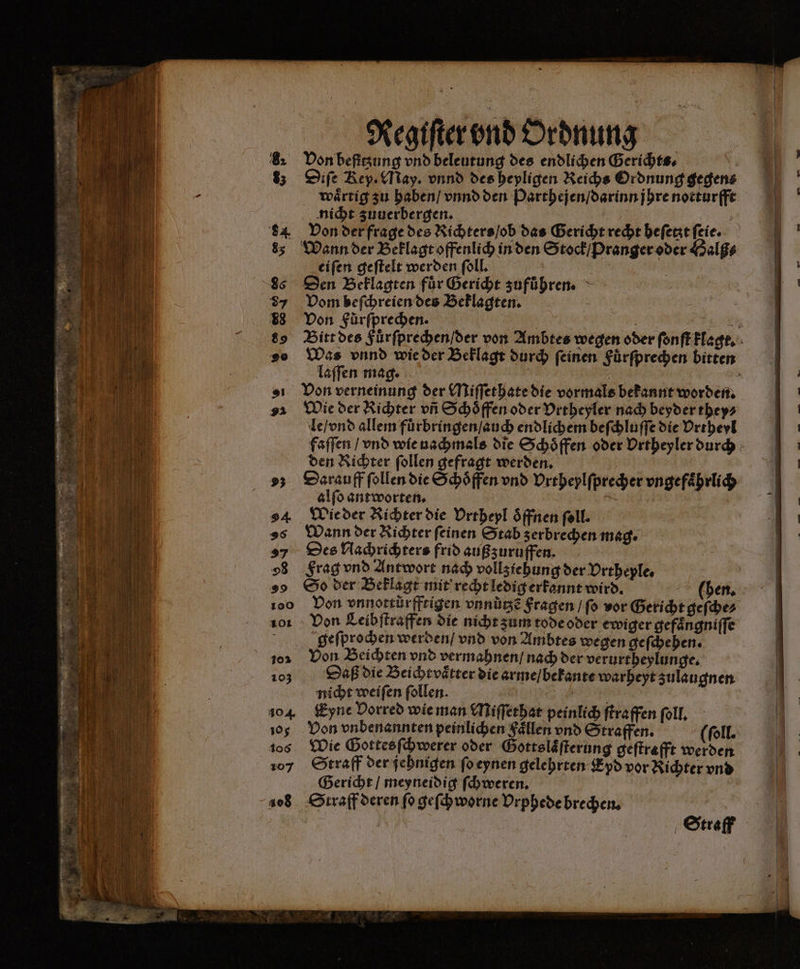 Regiſter vnd Ordnung
82 Von beſitzung vnd beleutung des endlichen Gerichts.
83 Diſe Key. May. vnnd des heyligen Reichs Ordnung gegen⸗
wårtig zu haben/ vnnd den Parthejen/ darinn jhre notturfft
nicht zuuerbergen.
84 Von der frage des Richters/ob das Gericht recht beſetzt ſeie.
85 Wann der Beklagt offenlich in den Stock/Pranger oder Halß⸗
eiſen geſtelt werden ſoll.
86 Den Beklagten für Gericht zuführen.
87 Vom beſchreien des Beklagten.
88 Von Fürſprechen.
89 Bitt des Fürſprechen/der von Ambtes wegen oder ſonſt klagt.
90 Was vnnd wie der Beklagt durch ſeinen Fürſprechen bitten
laſſen mag.
91 Von verneinung der Miſſethate die vormals bekannt worden.
92 Wie der Richter vñ Schöffen oder Vrtheyler nach beyder they⸗
le/vnd allem fürbringen/auch endlichem beſchluſſe die Vrtheyl
faſſen / vnd wie nachmals die Schöffen oder Vrtheyler durch
den Richter ſollen gefragt werden.
93 Darauff ſollen die Schöffen vnd Vrtheylſprecher vngefährlich
alſo antworten.
94 Wie der Richter die Vrtheyl öffnen ſoll.
96 Wann der Richter ſeinen Stab zerbrechen mag.
97 Des Nachrichters frid außzuruffen.
98 Frag vnd Antwort nach vollziehung der Vrtheyle.
99 So der Beklagt mit recht ledig erkannt wird. (hen.
100 Von vnnottürfftigen vnnützẽ Fragen / ſo vor Gericht geſche⸗
101 Von Leibſtraffen die nicht zum tode oder ewiger gefångniſſe
geſprochen werden/ vnd von Ambtes wegen geſchehen.
102 Von Beichten vnd vermahnen/ nach der verurtheylunge.
103 Daß die Beichtvåtter die arme/bekante warheyt zulaugnen
nicht weiſen ſollen.
104 Eyne Vorred wie man Miſſethat peinlich ſtraffen ſoll.
105 Von vnbenannten peinlichen Fällen vnd Straffen. (ſoll.
106 Wie Gottesſchwerer oder Gottslåſterung geſtrafft werden
107 Straff der jehnigen ſo eynen gelehrten Eyd vor Richter vnd
Gericht / meyneidig ſchweren.
108 Straff deren ſo geſchworne Vrphede brechen.
Straff